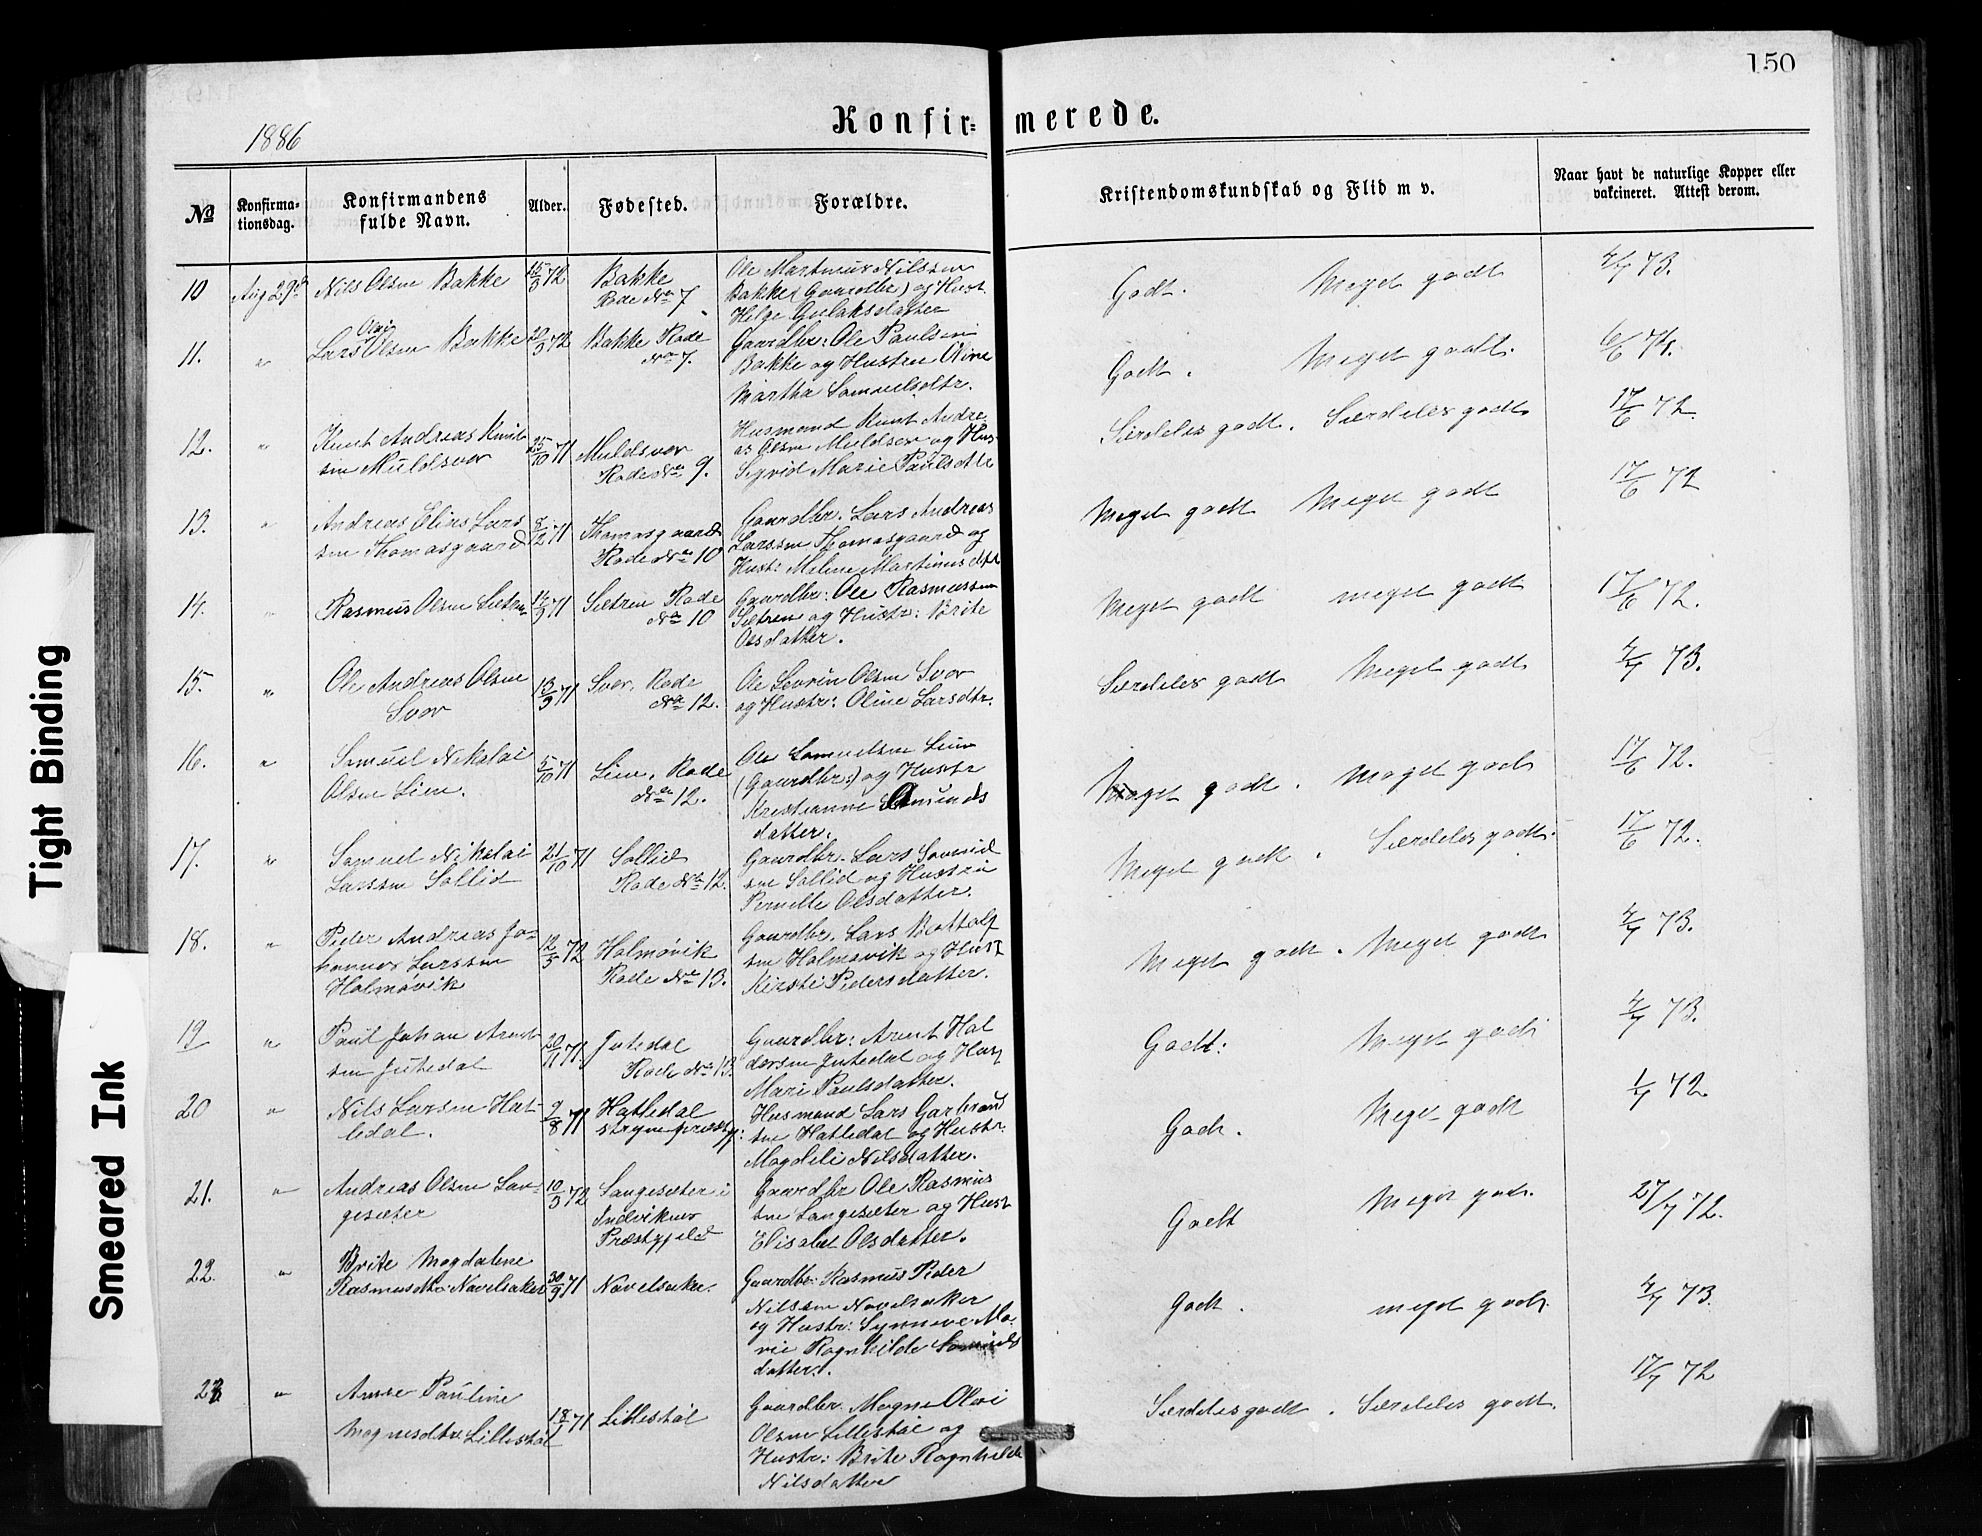 150
Konfirmerede.
1886
No
Konfirma-
tionsdag.
Konfirmandens
fulde Navn.
Alder.
Fødested.
Forældre.
Kristendomskundskab og Flid m v.
Naar havt de naturlige Kopper eller
vakcineret. Attest derom.
10 Aug 29d Nils Olsen Bakke 15/3 72 Bakke Ole Martinus Nilssen Godt. Meget godt 4/7 73.
Rode No 7. Bakke (Gaardbr) og Hust.
Helge Gulaksdatter
Olai
11. " Lars Olsen Bakke 20/3 72 Bakke Rode Gaardbr: Ole Paulsen Godt. Meget godt. 6/6 74.
No 7. Bakke og Hustru Oline
Martha Samuelsdtr.
12. " Knut Andreas Knut- 25/10 71 Muldsvor Husmand Knut Andre Særdeles godt. Særdeles godt. 17/6 72.
sen Muldsvor Rode No 9. as Olsen Muldsvor og Hus-
Sigrid Marie Paulsdtr
13. " Andreas Elias Lars 8/12 71 Thomasgaard Gaardbr. Lars Andreas Meget godt Meget godt 17/6 72
sen Thomasgaard Rode No 10 Larssen Thomasgaard og
Hust: Malene Martinusdtr
14. " Rasmus Olsen Sætren 14/9 71 Sætren Rode Gaardbr: Ole Rasmussen Meget godt meget godt 17/6 72.
No 10 Sætren og Hustr: Brite
Olsdatter.
15. " Ole Andreas Olsen 13/9 71 Svor. Rode Ole Sevrin Olsen Svor Særdeles godt Meget godt 4/7 73.
Svor No 12. og Hustr: Oline Larsdtr.
16. " Samuel Nikolai 5/10 71 Lien. Rode Ole Samuelsen Lien Meget godt. Meget godt 17/6 72.
Olsen Lien. No 12. (Gaardbr.) og Hustr
Kristianne Amunds
datter.
17. " Samuel Nikolai 21/10 71 Sollid Gaardbr. Lars Samuel Meget godt. Særdeles godt. 17/6 72.
Larssen Sollid Rode No 12. sen Sollid og Hustru
Pernille Olsdatter.
18. " Peder Andreas Jo- 12/3 72 Holmøvik Gaardbr. Lars Bottolf Meget godt. Meget godt 4/7 73.
hannes Larssen Rode No 13. sen Holmøvik og Hust
Holmøvik Kirsti Pedersdatter.
19 " Paul Johan Arnt- 20/11 71. Jutedal Gaardbr: Arnt Hal Godt: Meget godt 4/7 73.
sen Jutedal Rode No 13. dorsen Jutedal og Hust
Mari Paulsdatter.
20 " Nils Larsen Hat- 9/8 71 Hatledal Husmand Lars Garbrand Godt. Meget godt 1/7 72.
ledal. stryn præstgj: sen Hatledal og Hustr.
Magdeli Nilsdatter.
21. " Andreas Olsen Lan- 10/3 72 Langesæter i Gaardbr Ole Rasmus Godt Meget godt. 27/7 72.
gesæter Indvikens sen Langesæter og Hust
Præstgjeld Elisabet Olsdatter.
22. " Brite Magdalene
Rasmusdtr. Navelsaker 30/9 71 Navelsaker. Gaardbr: Rasmus Peder Godt. meget godt. 4/7 73.
Nilssen Navelsaker
og Hustr: Synneve Ma-
rie Ragnhilde Samuels
datter.
23 " Anne Pauline 17/7 72
Magnesdtr. Lillestøl 18/11 71 Lillestøl Gaardbr. Magne Olai Særdeles godt. Særdeles godt.
Olsen Lillestøl og
Hustr: Brite Ragnhilde
Nilsdatter
Tight Binding
Smeared Ink